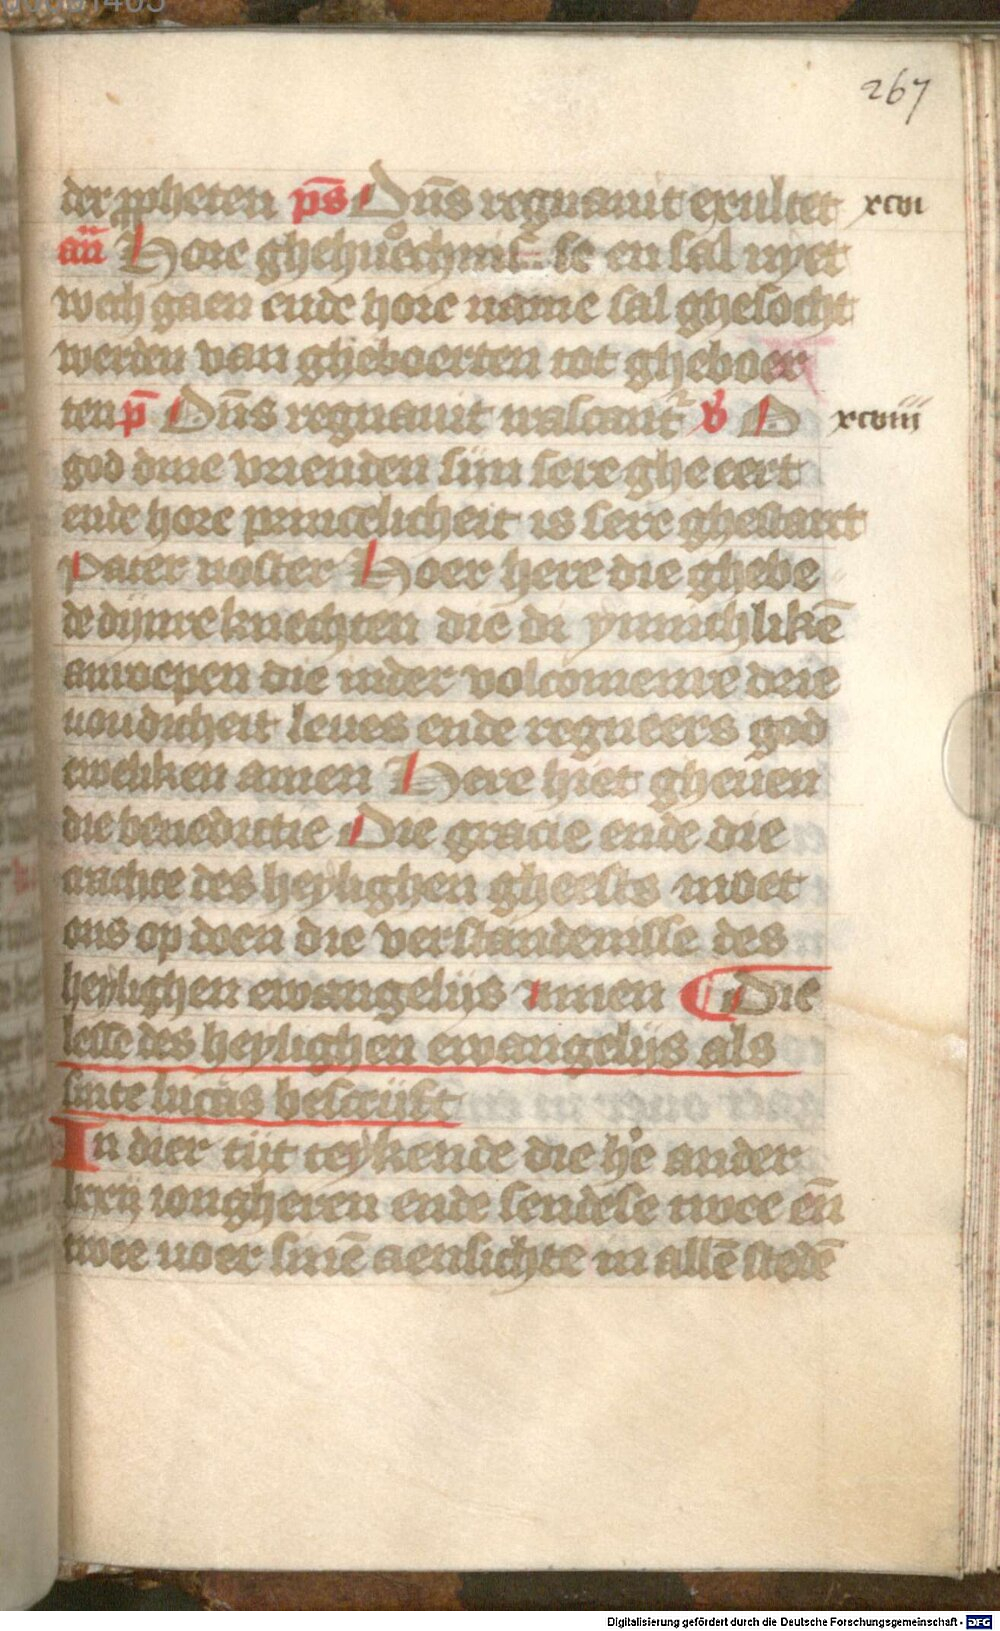 267
der ꝓpheten p̄s Dn̄s regnauit exultet xcvi
an̄ Hore ghehuechnisse en sal nyet
wech gaen ende hore name sal ghesocht
werden van gheboerten tot gheboer
ten p̄ Dn̄s regnauit irascant᷑ v̓ O xcviii
god dine vrienden sijn sere ghe eert
ende hore princelicheit is sere ghestarct
Pater noster Hoer here die ghebe
de dijnre knechten die di ynnichlikē
anroepen die inder volcomenre drie
uoudicheit leues ende regneers god
eweliken amen Here hiet gheuen
die benedictie Die gracie ende die
crachte des heylighen gheests moet
ons op doen die verstandenisse des
heylighen ewangelijs Amen Die
lesse des heylighen ewangelijs als
sinte lucas bescrijft
In dier tijt teykende die he ander
lxxij iongheren ende sendese twee en̄
twee uoer sinē aensichte in allē stedē
Digitalisierung gefördert durch die Deutsche Forschungsgemeinschaft - DFG